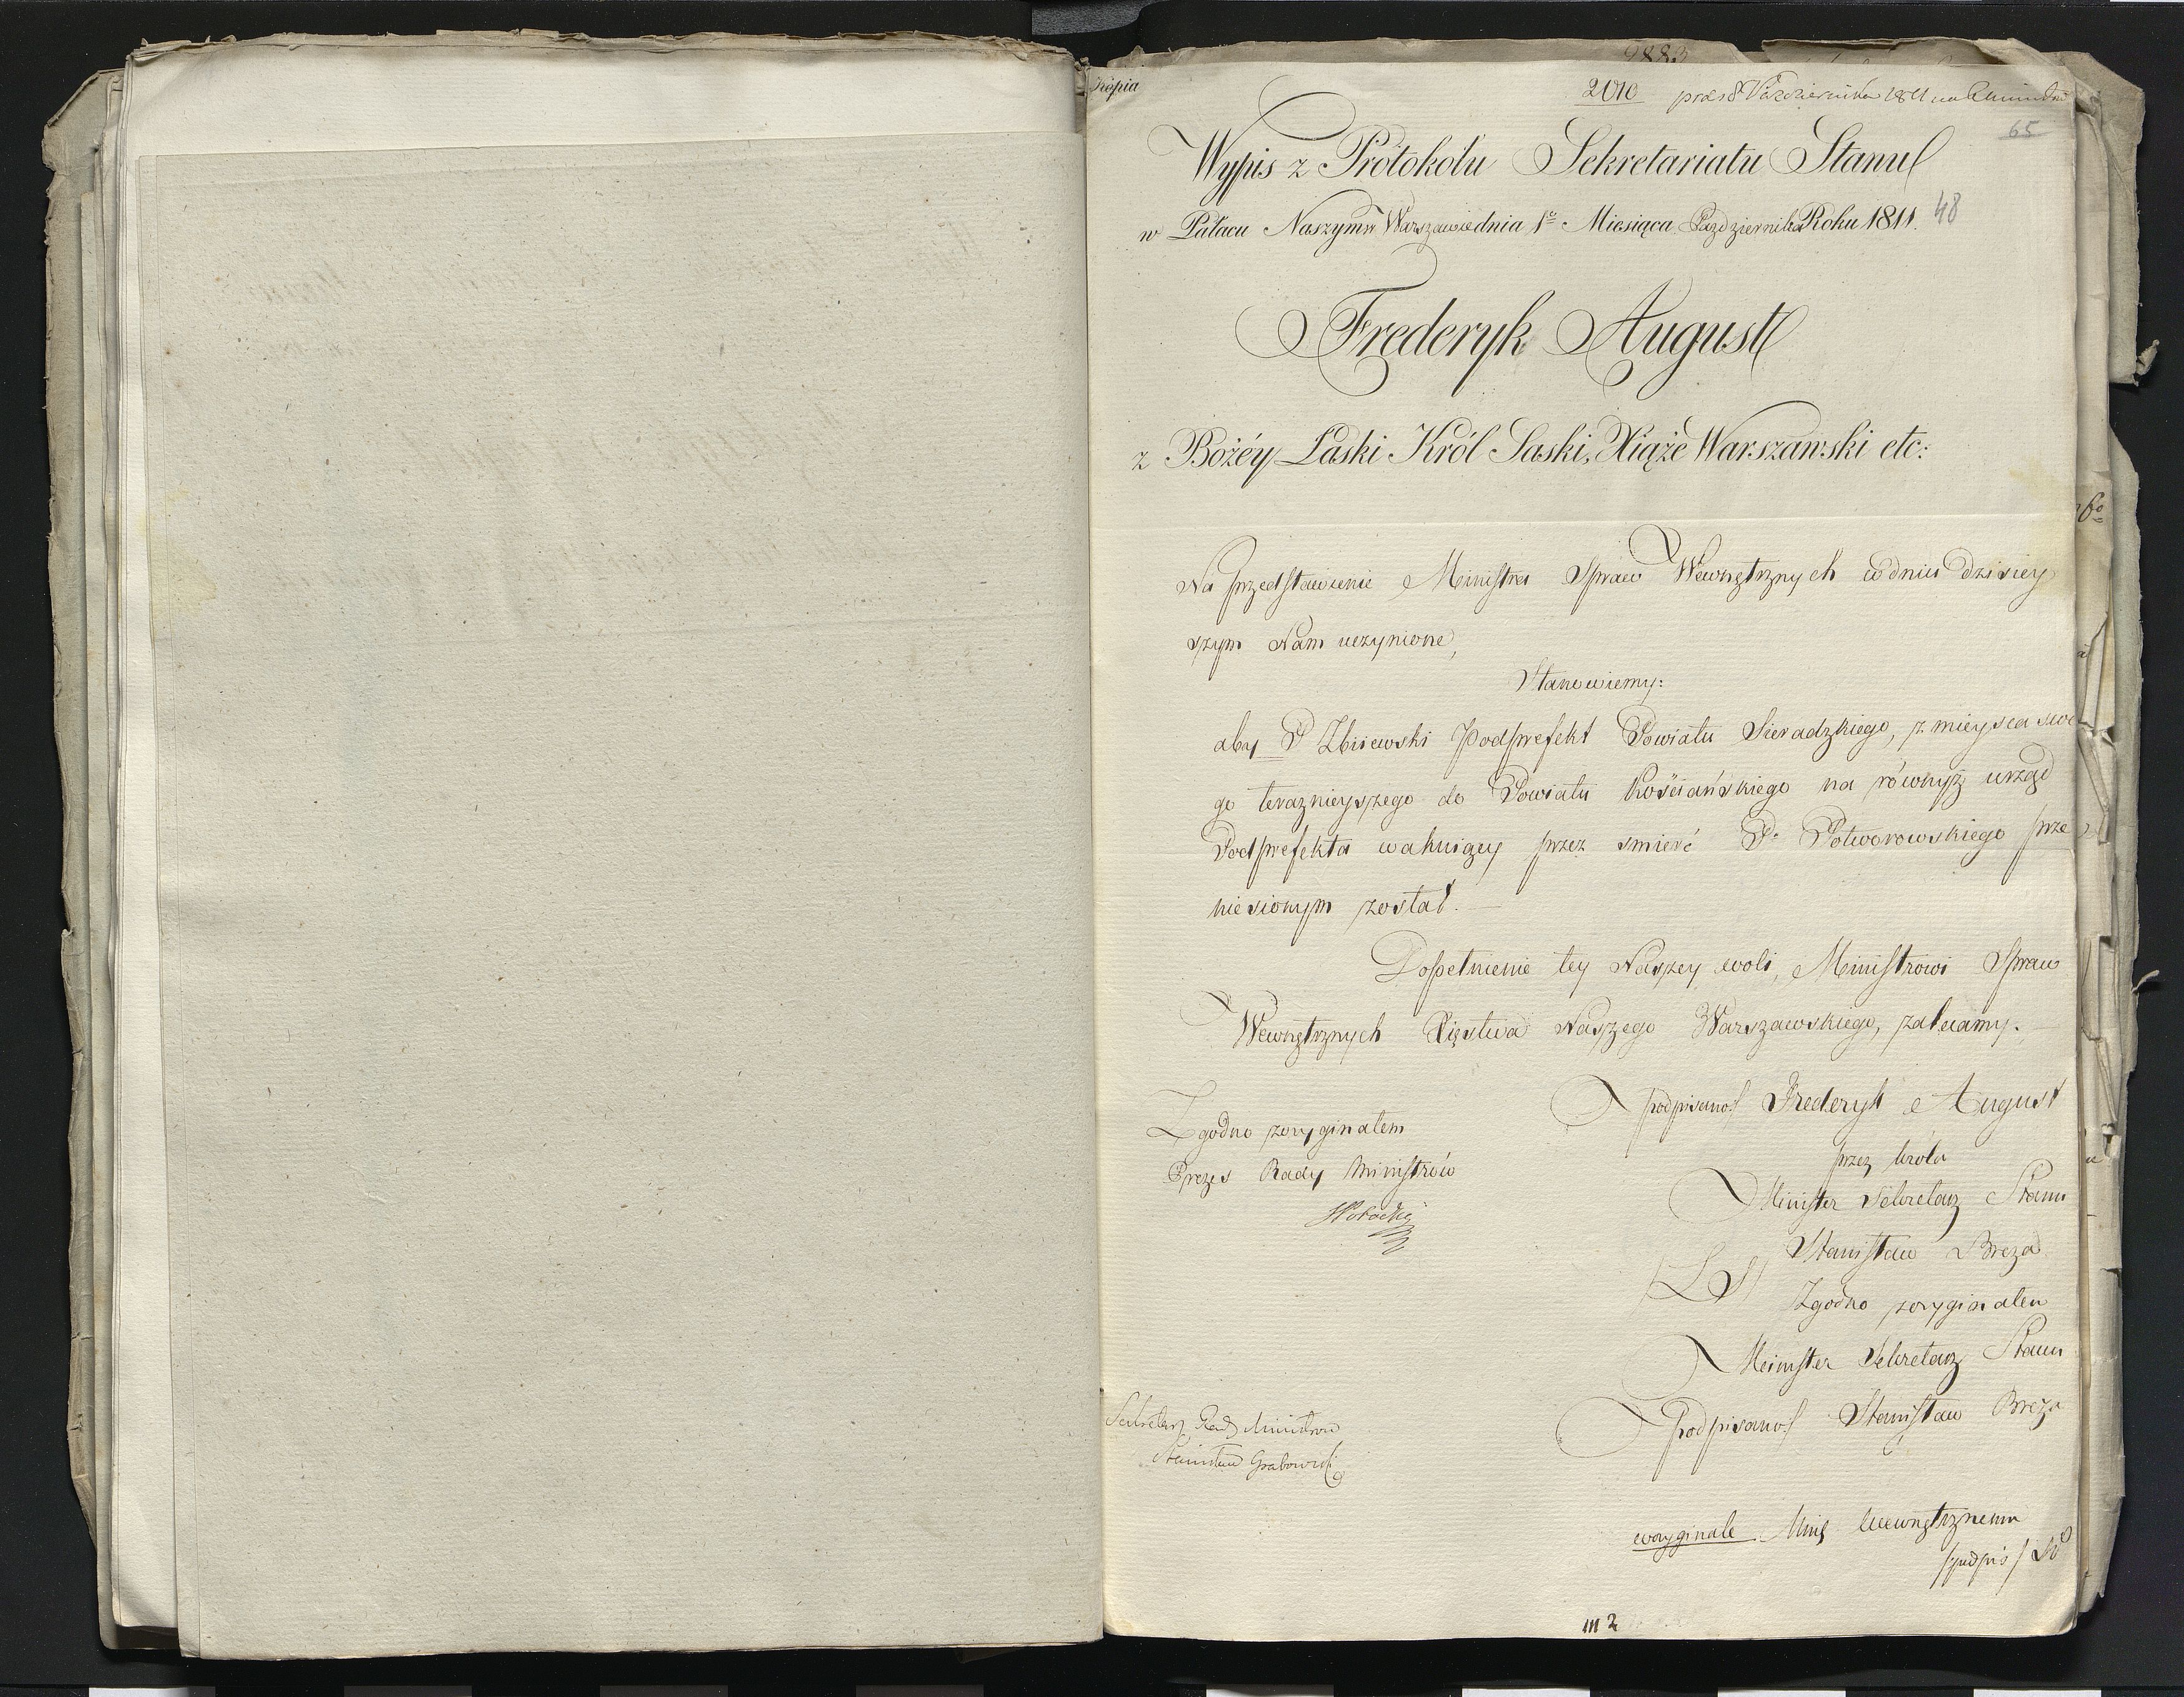 Kopia
2010 præs 8 Października 1811
65
Wypis z Protokołu Sekretariatu Stanu
48
w Pałacu Naszym w Warszawie dnia 1º Miesiąca Października Roku 1811.
Frederyk August
z Bożéy Łaski Król Saski, Xiąże Warszawski etc:
Na przedstawienie Ministra Spraw Wewnętrznych w dniu dzisiey
szym Nam uczynione,
Stanowiemy:
aby P Zbiiewski Podprefekt Powiatu Sieradzkiego, z mieysca swe
go teraznieyszego do Powiatu Kościańskiego na równyż urząd
Podprefekta wakuiący przez smierć P. Potworowskiego prze
niesionym został. —
Dopełnienie tey Naszey woli, Ministrowi Spraw
Wewnętrznych Xięstwa Naszego Warszawskiego, zalecamy.
podpisano/ Frederyk August
Zgodno z oryginałem
przez Króla
Prezes Rady Ministrów
Minister Sekretarz Stanu
SPotocki
Stanisław Breza
/LS/
Zgodno z oryginałem
Minister Sekretarz Stanu
podpisano/ Stanisław Breza
Sekretarz Rady Ministrow
Stanisław Grabowski
w oryginale Minę Wewnętrznemu
/podpis/
m 2